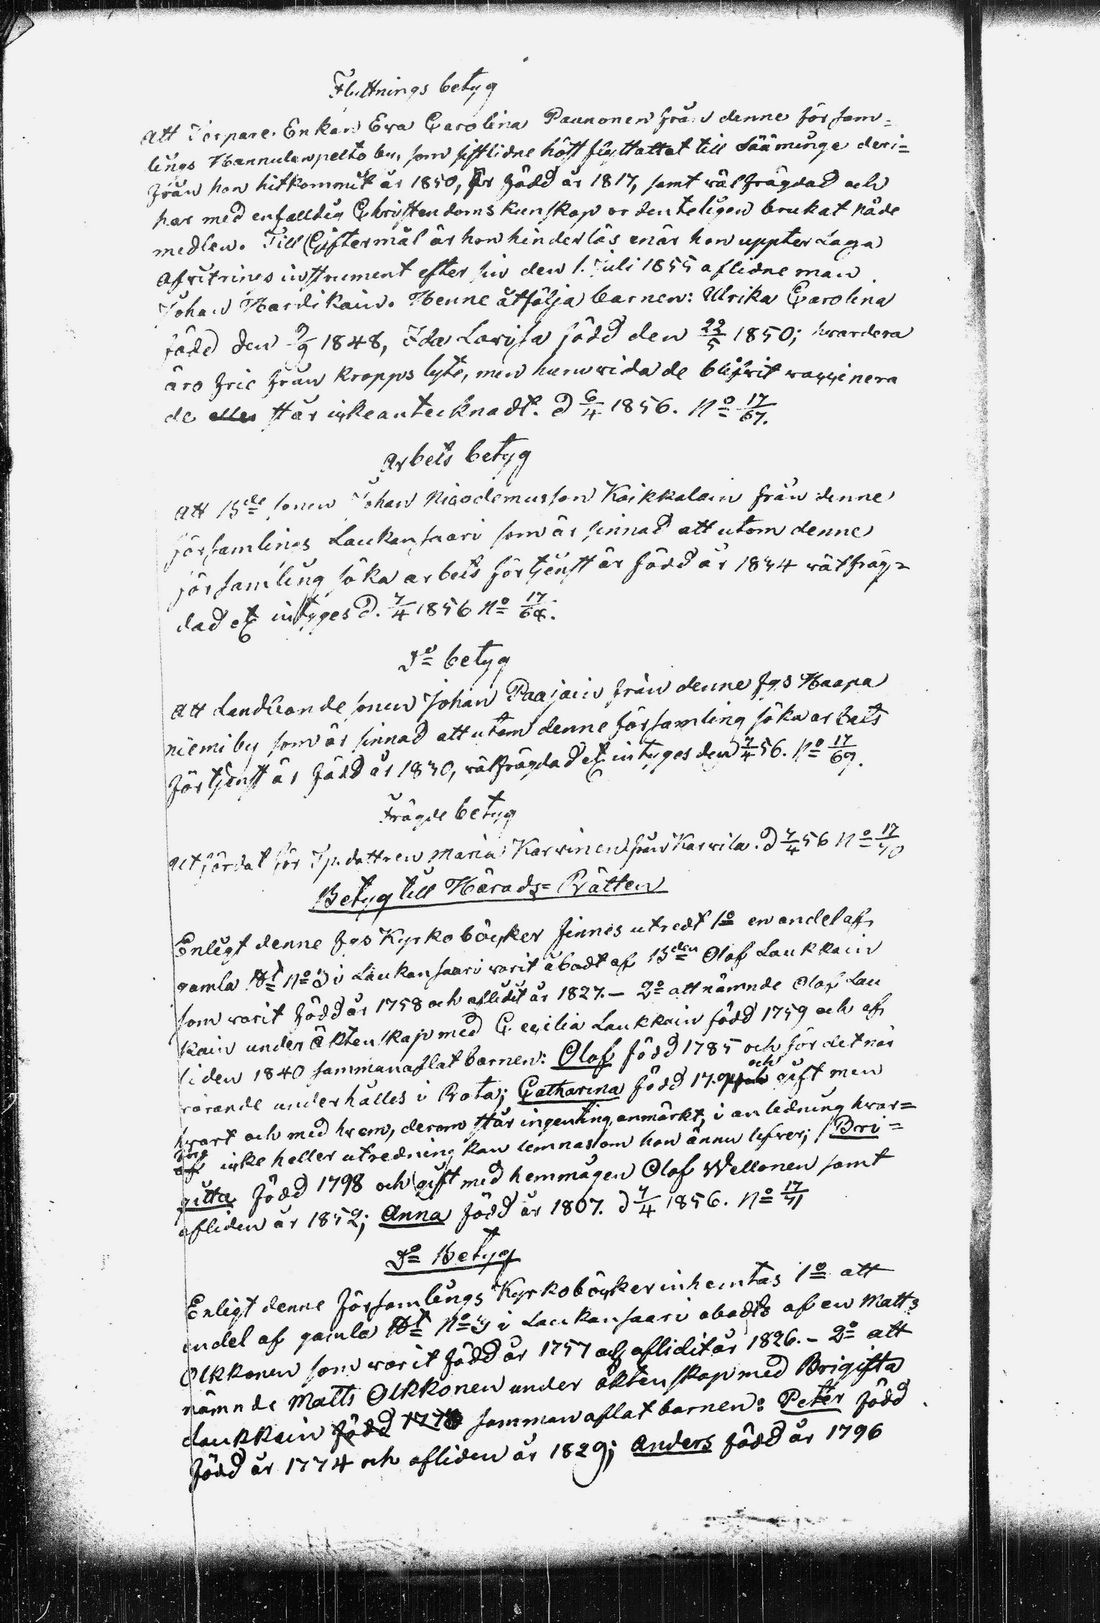 Flyttnings betyg
Att Torpare Enkan Eva Carolina Paunonen från denne försam=
lings Hannulanpelto by, som sistlidne höst flyttattat till Sääminge deri=
från hon hitkommit år 1850, är född år 1817, samt välfrägdad och
har med enfalldig Christendoms kunskap ordenteligen brukat nåde
medlen. Till Giftermål är hon hinderlös enär hon uppter Laga
Afvitrings instrument efter sin den 1. Juli 1855 aflidne man
Johan Hardikain. Henne åtfölja barnen: Ulrika Carolina
född den 9/9 1848, Ida Lovisa född den 22/5 1850; hvardera
äro frie från kropps lyte, men huruvida de blifvit vaccinera
de eller står icke antecknadt. d 6/4 1856. No 17/67.
Arbets betyg
Att Bde sonen Johan Nicodemusson Kaikkalain från denne
församlings Laukansaari som är sinnad att utom denne
församling söka arbets förtjenst är född år 1834 välfräg=
dad etc intyges d. 7/4 1856 No 17/68.
Do betyg
Att Landbonde sonen Johan Paajain från denne fgs Haapa
niemi by som är sinnad att utom denne församling söka arbets
förtjenst är född år 1830, välfrägdad etc intyges den 7/4 56. No 17/69.
Frägde betyg
Utfärdat för Tp. dottren Maria Karvinen från Karvila. d 7/4 56 No 17/70
Betyg till Härads= Rätten
Enligt denne fgs Kyrkoböcker finnes utredt 1o en andel af
gamla Ht No 3 i Laukansaari varit åbodt af Bden Olof Laukkain
som varit född år 1758 och aflidit år 1827. – 2o att nämnde Olof Lau
kain under äktenskap med Cecilia Laukkain född 1759 och af
liden 1840 sammanaflat barnen: Olof född 1785 och för det när
varande underhålles i Rota; Catharina född 17 och gift men
hvart och med hvem, derom står ingenting anmärkt, i anledning hvar=
före icke heller utredning kan lemnas om hon ännu lefver; Bri=
gitta född 1798 och gift med hemmågen Olof Wellonen samt
afliden år 1852; Anna född år 1807. d 7/4 1856. No 17/71
Do Betyg
Enligt denne Församlings Kyrkoböcker inhemtas 1o att
endel af gamla Ht No 3 i Laukansaari abodts af en Matts
Olkkonen som varit född år 1757 och aflidit år 1826. – 2o att
nämnde Matts Olkkonen under äktenskap med Brigitta
Laukkain född 1778 sammanaflat barnen: Peter född
född år 1774 och afliden år 1829; Anders född år 1796